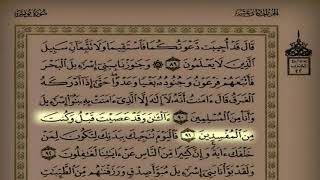 قَالَ قَدْ أُجِيبَت دَّعْوَتُكُمَا فَاسْتَقِيمَا وَلَا تَتَّبِعَانِّ سَبِيلَ
الَّذِينَ لَا يَعْلَمُونَ ٨٩ وَجَاوَزْنَا بِبَنِي إِسْرَائِيلَ الْبَحْرَ
فَأَتْبَعَهُمْ فِرْعَوْنُ وَجُنُودُهُ بَغْيًا وَعَدْوًا حَتَّى إِذَا أَدْرَكَهُ
الْغَرَقُ قَالَ آمَنتُ أَنَّهُ لَا إِلَهَ إِلَّا الَّذِي آمَنَتْ بِهِ بَنُو إِسْرَائِيلَ
وَأَنَا مِنَ الْمُسْلِمِينَ ٩٠ ءَآلْـَٰنَ وَقَدْ عَصَيْتَ قَبْلُ وَكُنتَ
مِنَ الْمُفْسِدِينَ ٩١ فَالْيَوْمَ نُنَجِّيكَ بِبَدَنِكَ لِتَكُونَ لِمَنْ
خَلْفَكَ آيَةً وَإِنَّ كَثِيرًا مِّنَ النَّاسِ عَنْ آيَاتِنَا لَغَافِلُونَ ٩٢
وَلَقَدْ بَوَّأْنَا بَنِي إِسْرَائِيلَ مُبَوَّأَ صِدْقٍ وَرَزَقْنَاهُم مِّنَ الطَّيِّبَاتِ